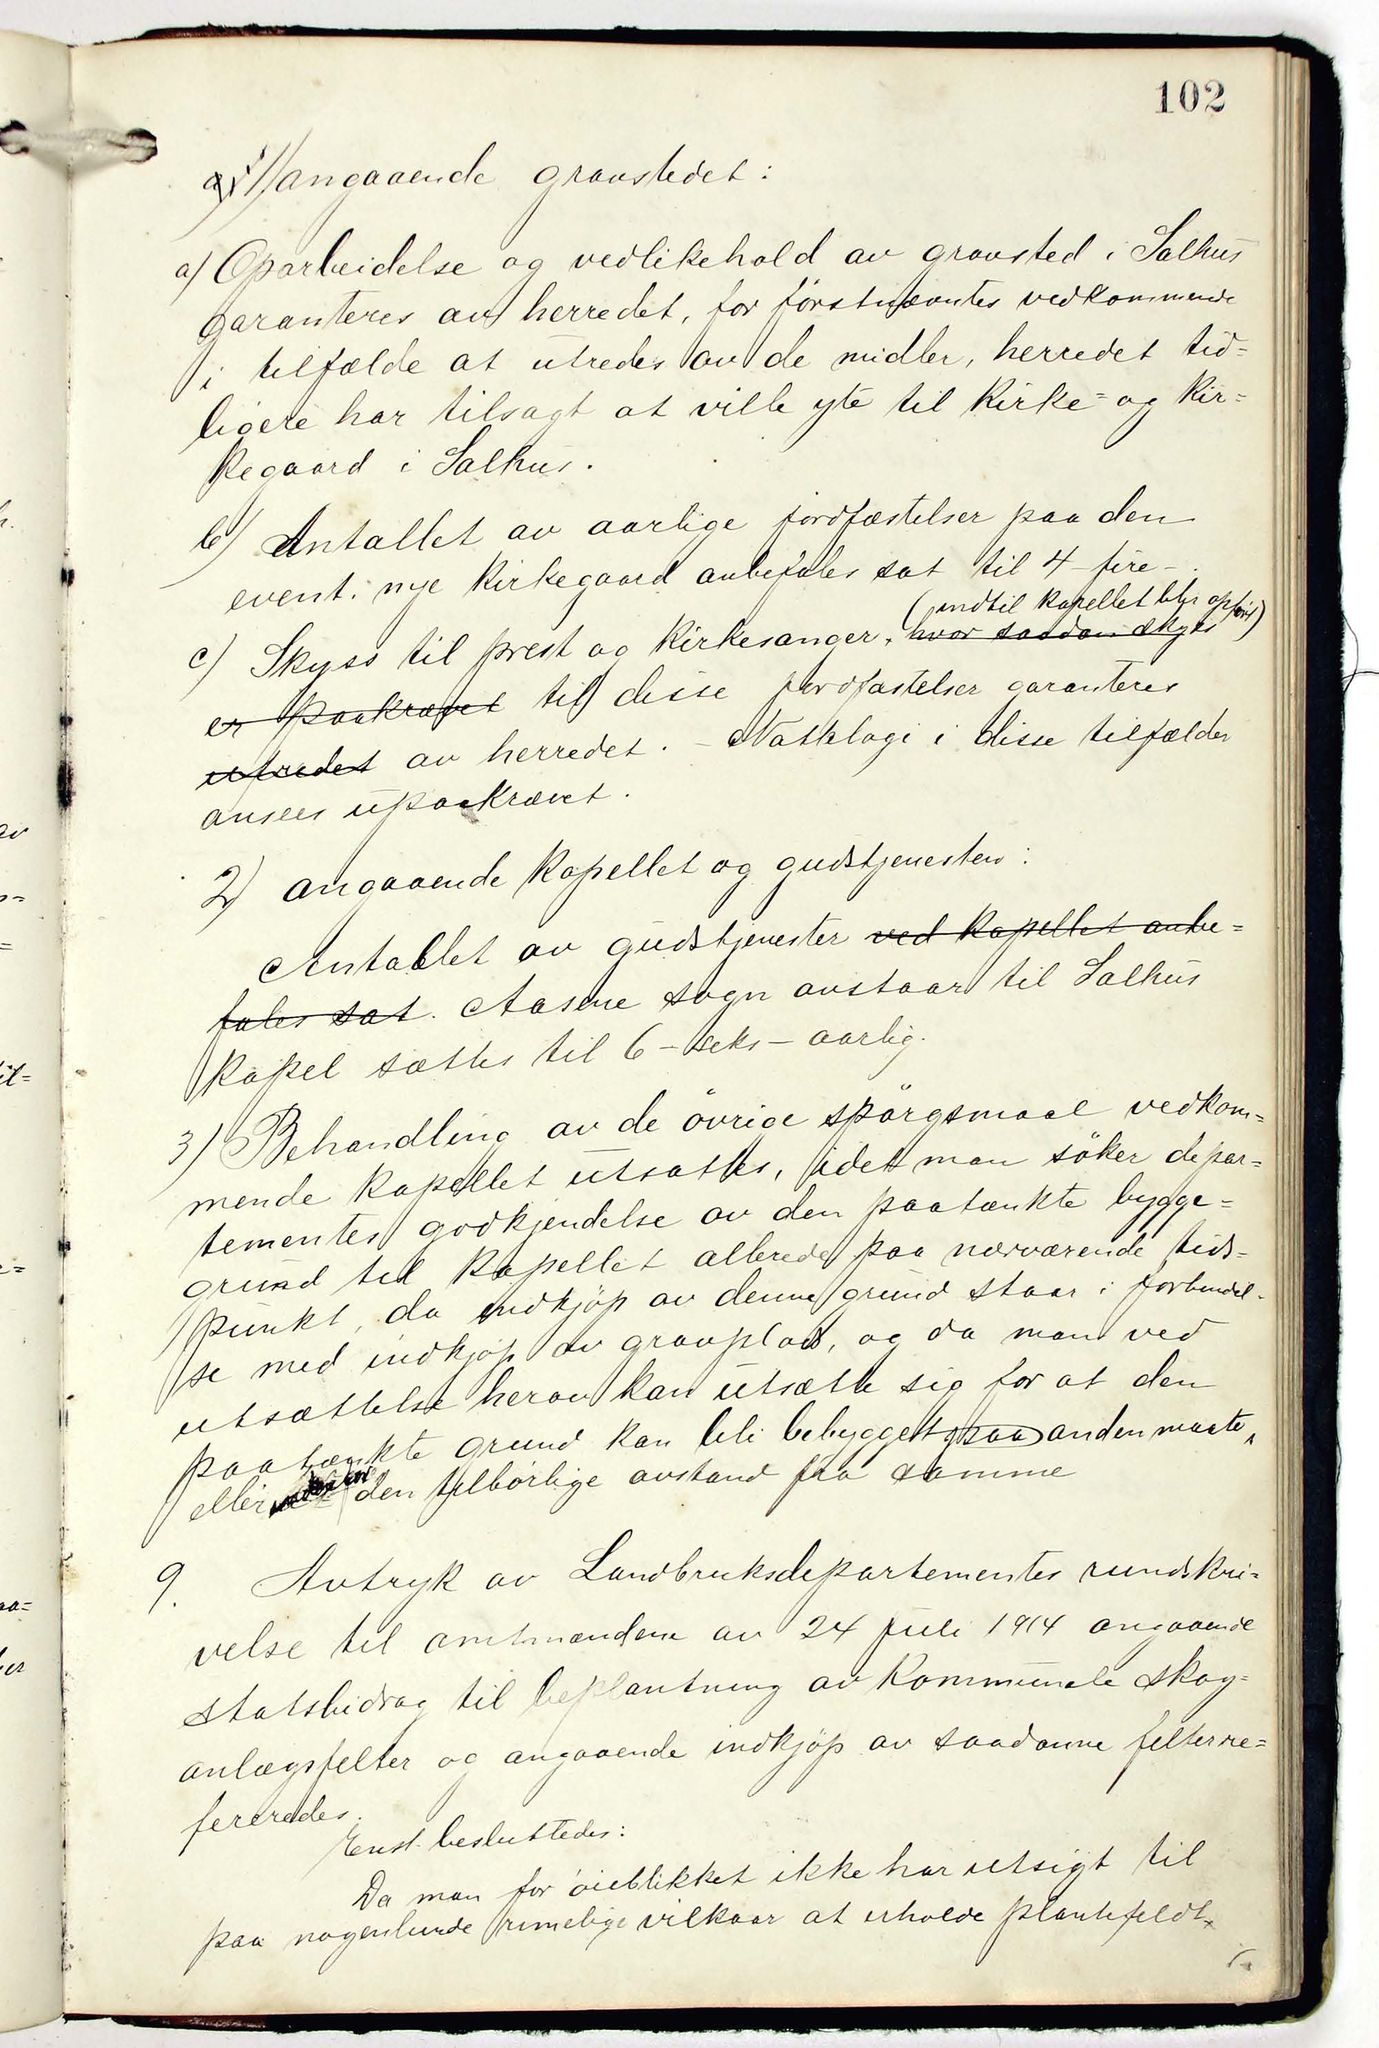 102
1) angaaende gravstedet:
a) Oparbeidelse og vedlikehold av gravsted i Salhus
garanteres av herredet, for förstnævntes vedkommende
i tilfælde at utredes av de midler, herredet tid=
ligere har tilsagt at ville yte til kirke= og kir=
kegaard i Salhus.
b) Antallet av aarlige jordfæstelser paa den
event. nye kirkegaard anbefales sat til 4 - fire -.
(indtil kapellet blir opfört)
c) Skyss til prest og kirkesanger, hvor saadan skyss
er paakrævet til disse jordfæstelser garanteres
utredet av herredet. - Natklogi i disse tilfælder
ansees upaakrævet.
2) angaaende kapellet og gudstjenesten:
Antallet av gudstjenester ved kapellet anbe=
fales sat. Aasene sogn avstaar til Salhus
kapel sættes til 6 - seks - aarlig.
3) Behandling av de övrige spörgsmaal vedkom=
mende kapellet utsættes, idet man söker depar=
tementes godkjendelse av den paatænkte bygge=
grund til kapellet allerede paa nærværende tids=
punkt, da indkjöp av denne grund staar i forbindel-
se med indkjöp av gravplads, og da man ved
utsættelse herav kan utsætte sig for at den
paatænkte grund kan bli bebygget paa anden maate,
eller den tilbörlige avstand fra samme
9. Avtryk av Landbruksdepartementes rundskri=
velse til amtmændene av 24 juli 1914 angaaende
statsbidrag til beplantning av kommunale skog=
anlægsfelter og angaaende indkjöp av saadanne felter re=
fereredes.
Enst. besluttedes:
Da man for öieblikket ikke har utsigt til
paa nogenlunde rimelige vilkaar at erholde plantefeldt,